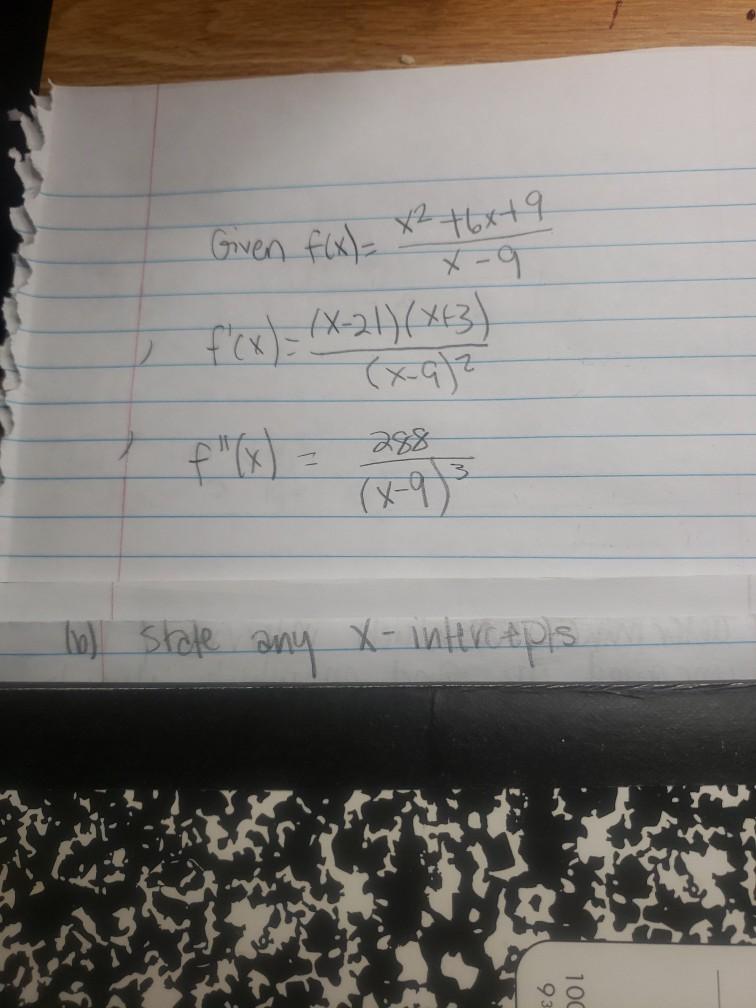 Given f(x)= x² +6x+9 / x-9
, f'(x)= (x-21)(x+3) / (x-9)²
, f"(x) = 288 / (x-9)³
(b) State any x-intercepts
100